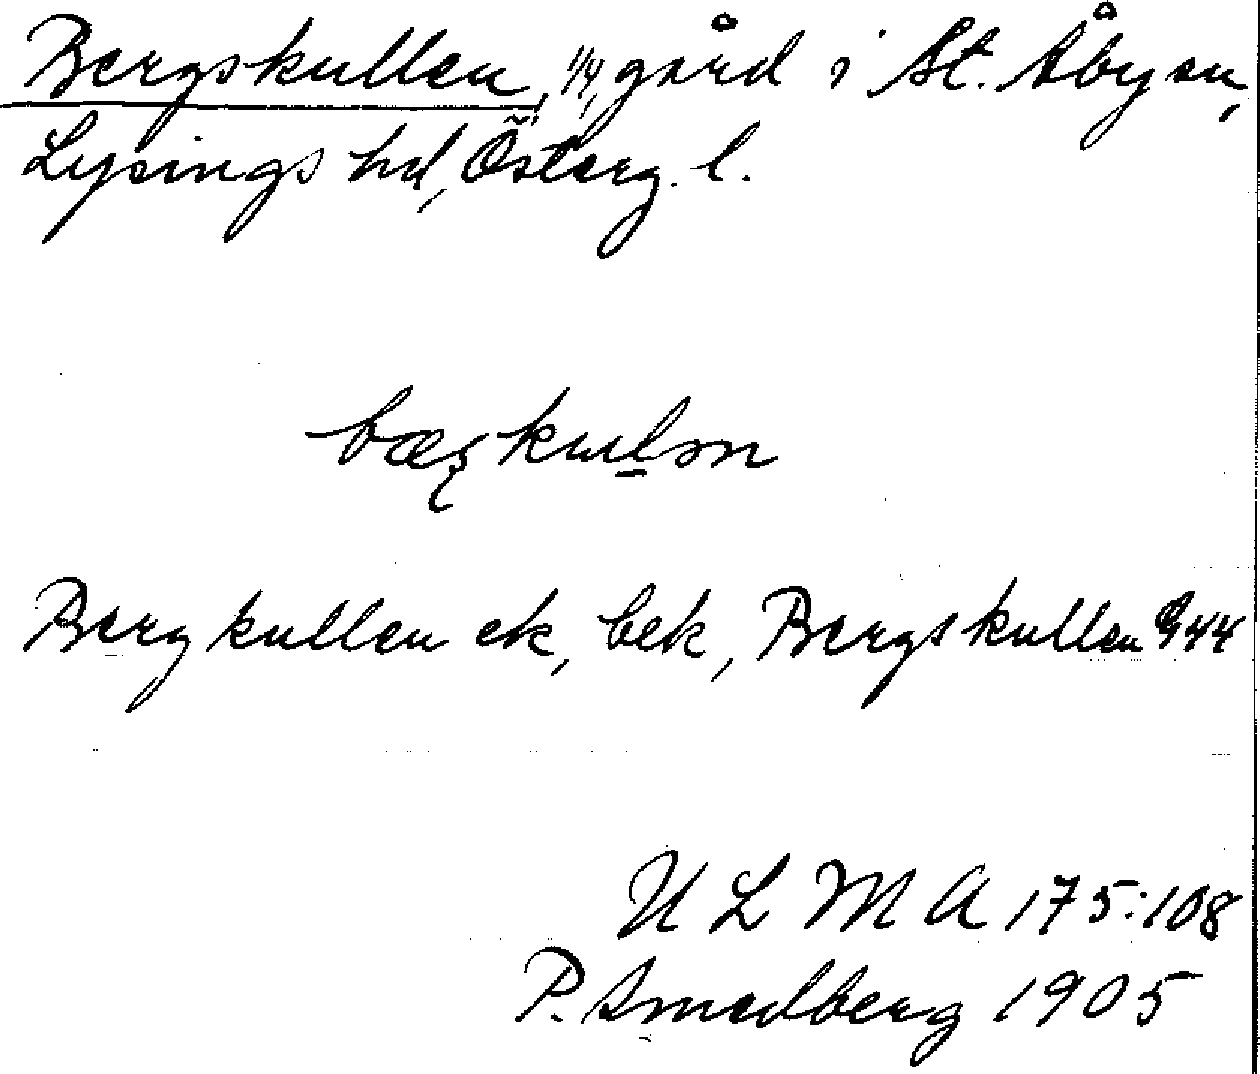 Bergskullen, 1/4, gård i St. Åby sn,
Lysings hd, Österg. l.
Bergkullen ek, bek, Bergskullen G 44
ULMA 175:108
P. Smedberg 1905